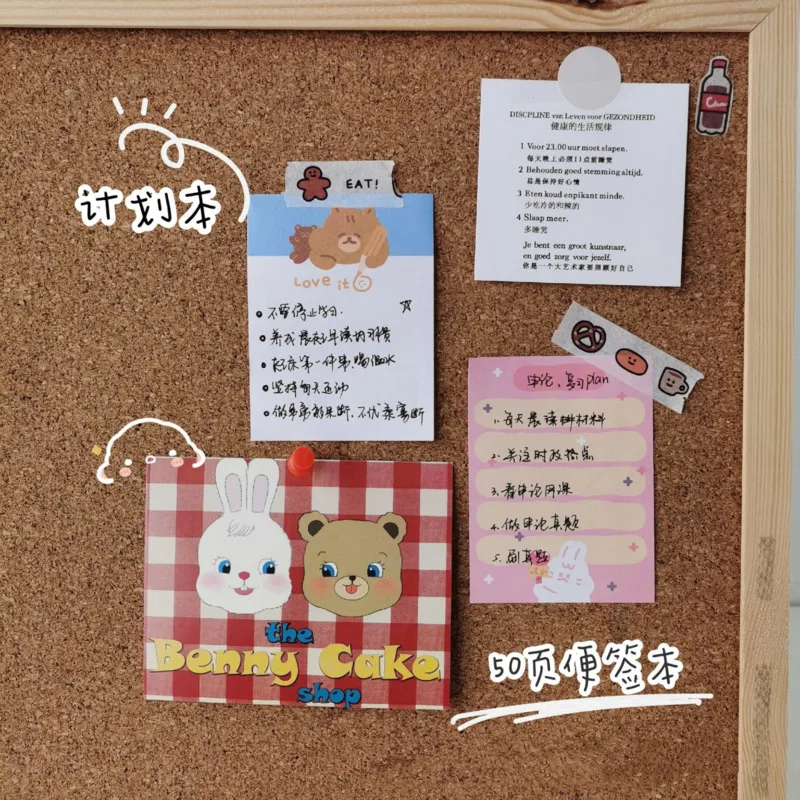 计划本
EAT!
Love it
不要停止学习.
养成早起早读的习惯
起床第一件事,喝温水
坚持每天运动
做事奔着果断,不优柔寡断
DISCPLINE van Leven voor GEZONDHEID
健康的生活规律
1 Voor 23.00 uur moet slapen.
每天晚上必须11点前睡觉
2 Behouden goed stemming altijd.
总是保持好心情
3 Eten koud en pikant minde.
少吃冷的和辣的
4 Slaap meer.
多睡觉
Je bent een groot kunstnaar,
en goed zorg voor jezelf.
你是一个大艺术家要照顾好自己
申论,复习plan
1.每天晨读材料
2.关注时政热点
3.看申论网课
4.做申论真题
5.刷真题
the
Benny Cake
shop
50页便签本